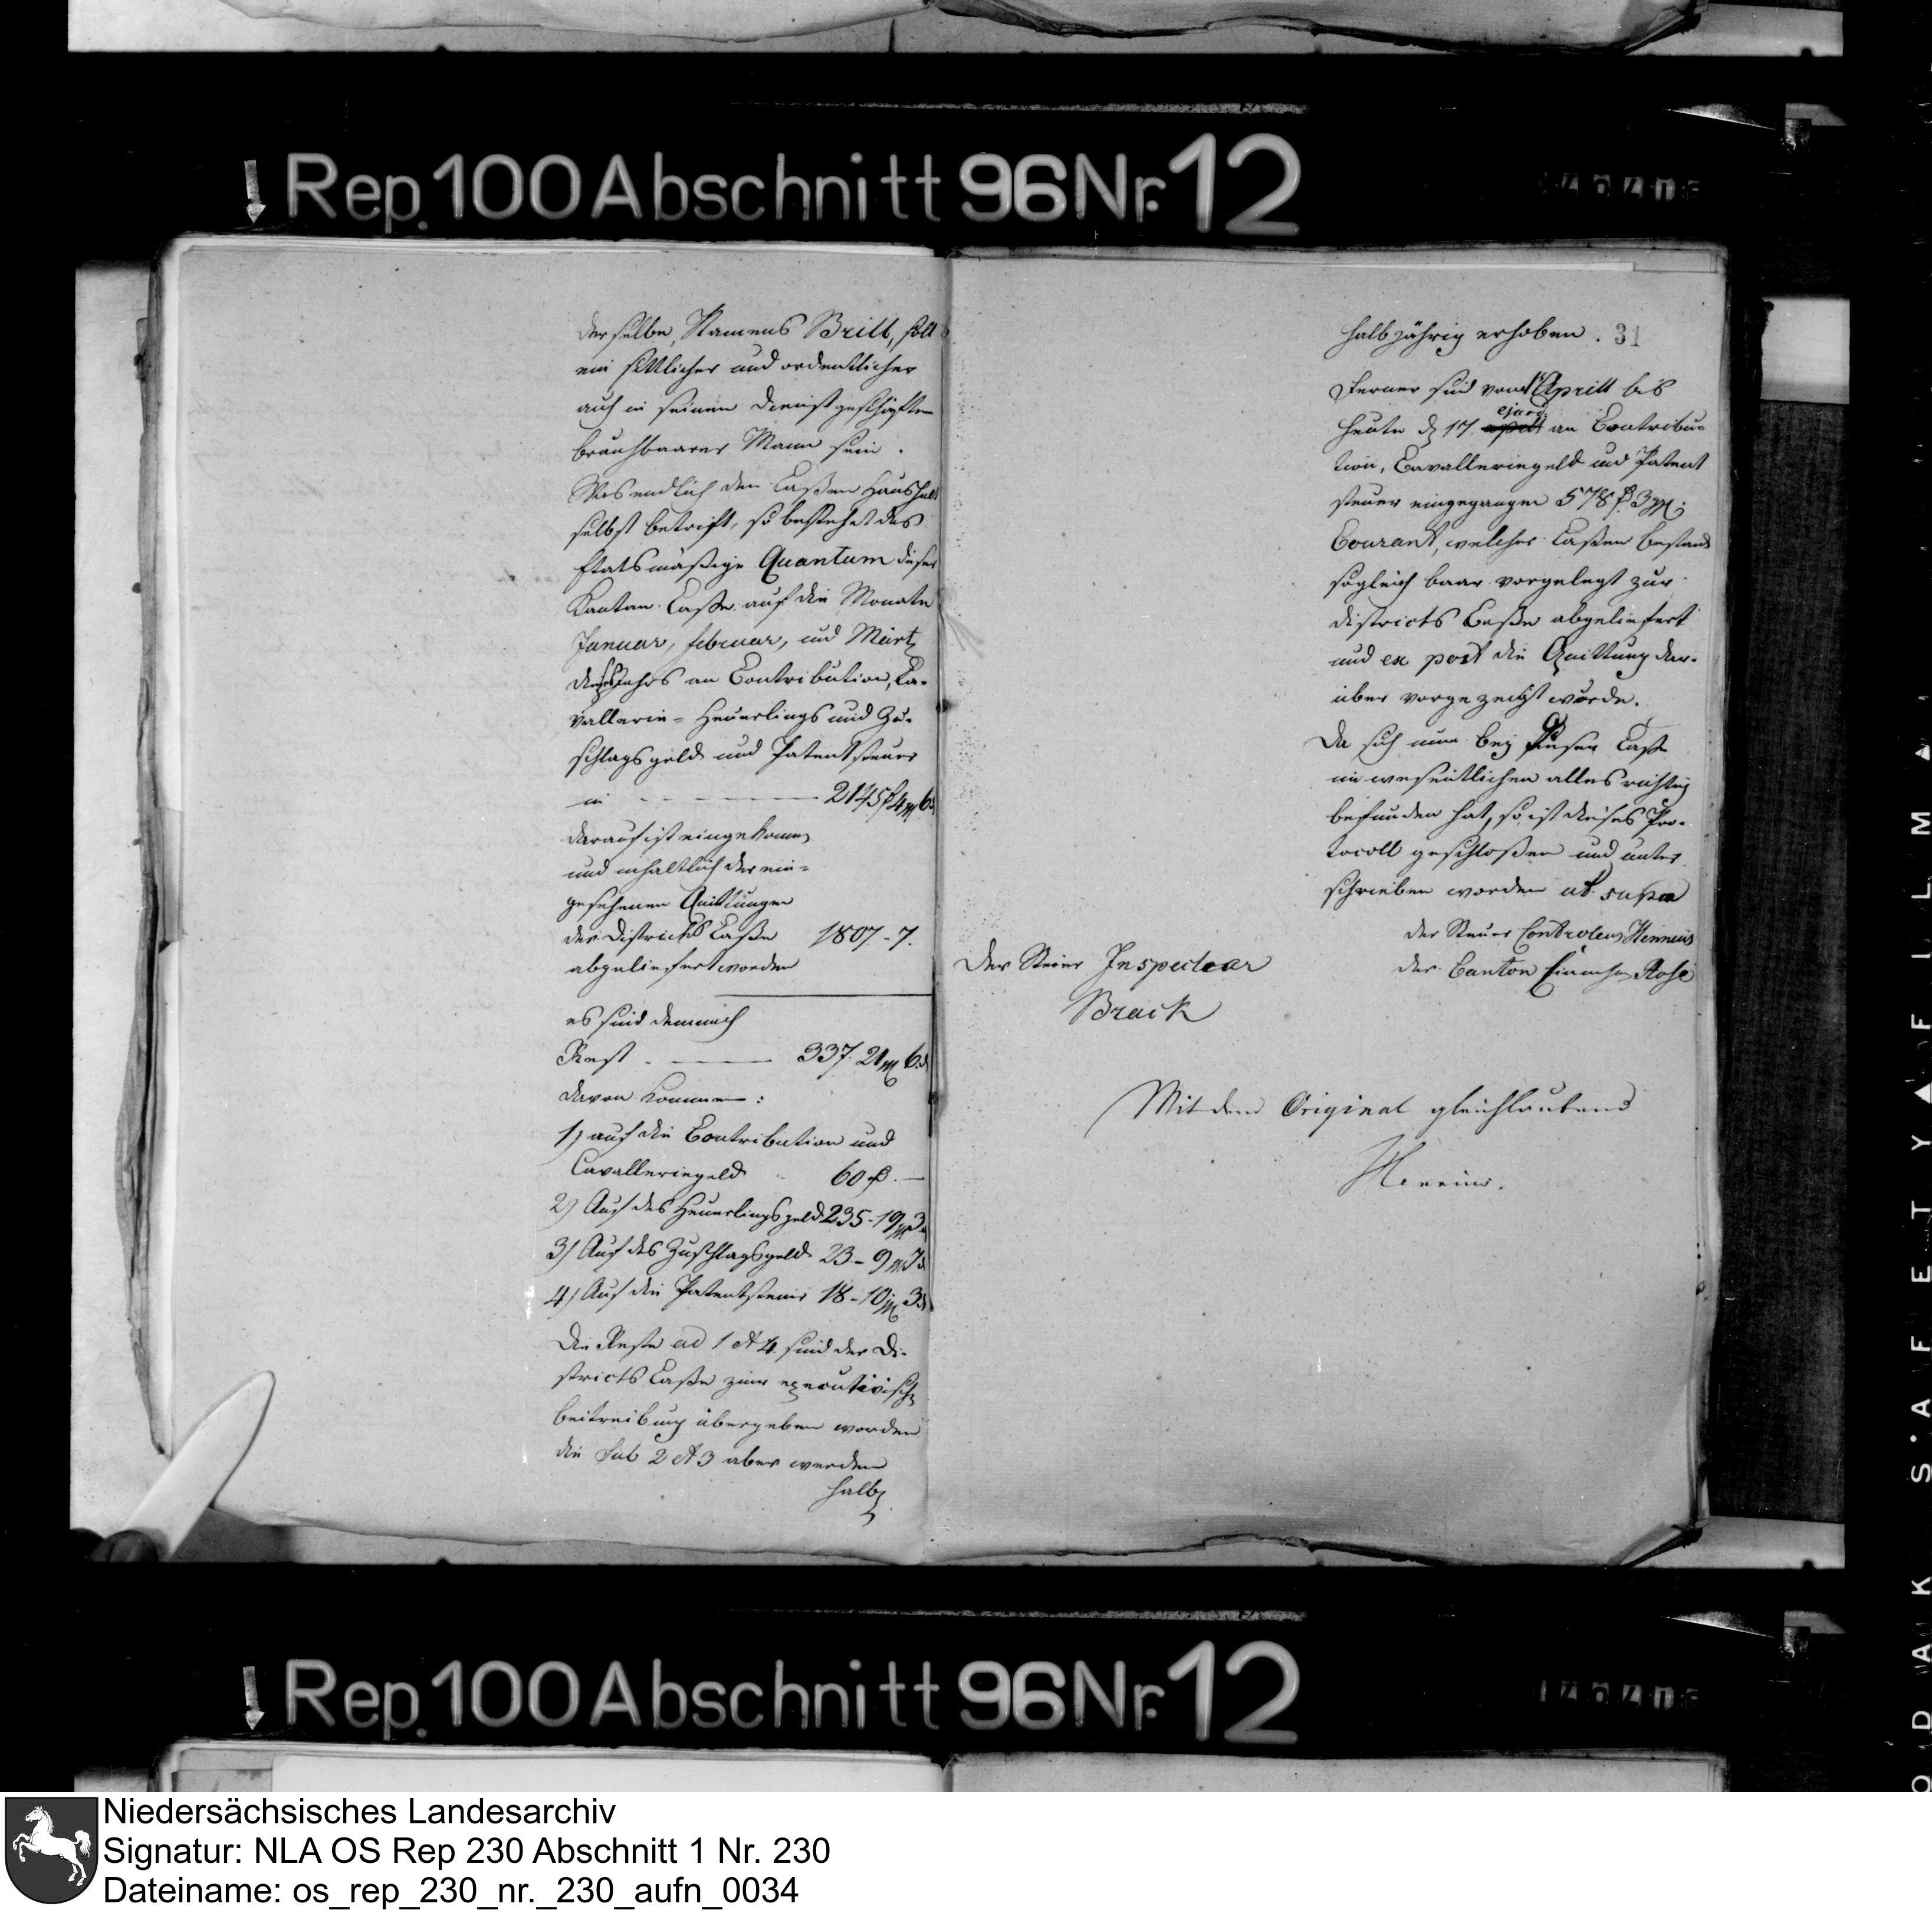 Rep. 100 Abschnitt 96 Nr. 12
derselbe, Namens Brill, soll
ein sittlicher und ordentlicher
auch in seinen Dienstgeschäften
brauchbaarer Mann sein.
Was endlich den Caßen Haushalt
selbst betrift, so bestehet das
Etatsmäßige Quantum dieser
Kanton Caße auf die Monate
Januar, Februar, und Märtz
dieses Jahrs an Contribution, Ca-
vallerie- Heuerlings und Zu-
schlagsgeld und Patentsteuer
in 2145
darauf ist eingekommen
und inhaltlich der ein-
gesehenen Quittungen
der Districts Caße 1807 - 7.
abgeliefert worden
es sind demnach
Rest 337. 21 6
davon kommen:
1) auf die Contribution und
Cavalleriegeld 60
2) Auf das Heuerlingsgeld 235 - 19 3
3) Auf das Zuschlagsgeld 23 - 9
4) Auf die Patentsteuer 18 - 10 3
Die Reste ad 1 et 4 sind der Di-
stricts Caße zur executivischen
Beitreibung übergeben worden
die sub 2 et 3 aber werden
halbj
halbjährig erhoben.
31
Ferner sind vom 1 Aprill bis
ejusd.
heute d 17. an Contribu-
tion, Cavalleriegeld und Patent
steuer eingegangen 578 3
Courant, welcher Caßen bestand
sogleich baar vorgelegt zur
Districts Caße abgeliefert
und ex post die Quittung dar-
über vorgezeigt wurde.
Da sich nun bey dieser Caße
im wesentlichen alles richtig
befunden hat, so ist dieses Pro-
tocoll geschloßen und unter
schrieben worden ut supra
der Steuer Controleur
der Canton Einnehmer Rose
Der Steuer Inspecteur
Brack
Mit dem Original gleichlautend
Rep. 100 Abschnitt 96 Nr. 12
KODAK SAFETY FILM
Niedersächsisches Landesarchiv
Signatur: NLA OS Rep 230 Abschnitt 1 Nr. 230
Dateiname: os_rep_230_nr._230_aufn_0034